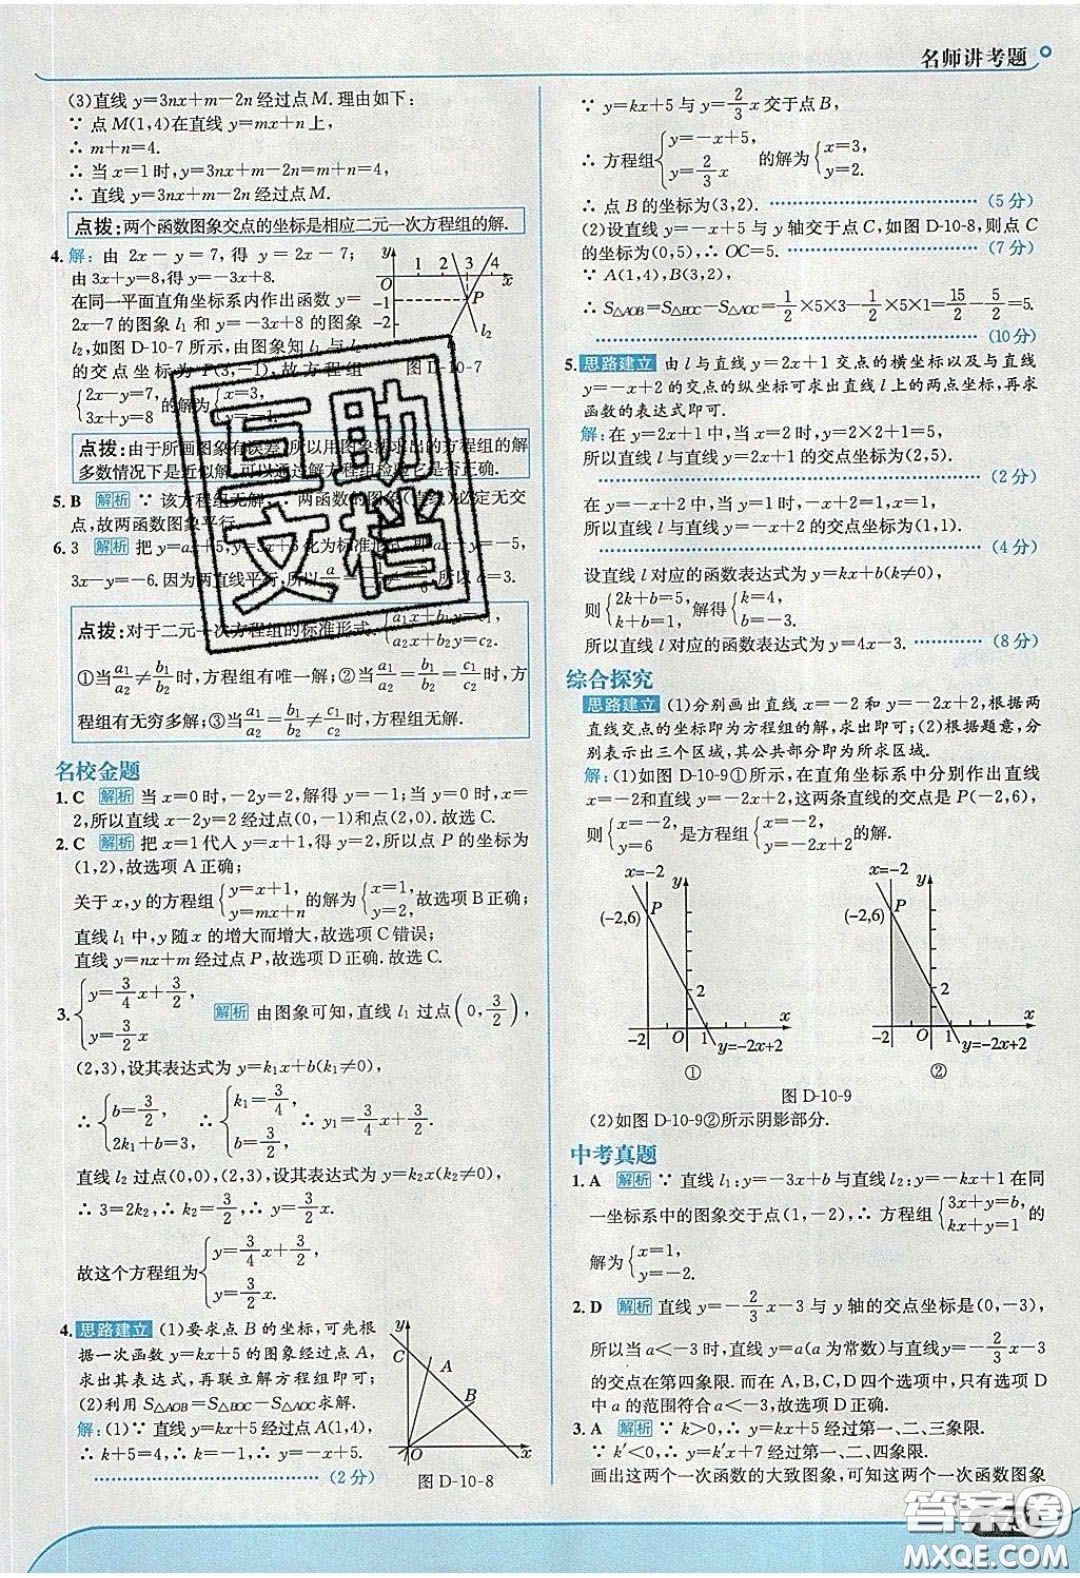 名师讲考题
(3)直线 y=3nx+m-2n 经过点 M. 理由如下:
∵ 点 M(1,4)在直线 y=mx+n 上,
∴ m+n=4.
∴ 当 x=1 时,y=3nx+m-2n=m+n=4,
∴ 直线 y=3nx+m-2n 经过点 M.
点拨:两个函数图象交点的坐标是相应二元一次方程组的解.
4. 解:由 2x-y=7,得 y=2x-7;
由 3x+y=8,得 y=-3x+8.
在同一平面直角坐标系内作出函数 y=
2x-7 的图象 l₁ 和 y=-3x+8 的图象
l₂,如图 D-10-7 所示,由图象知 l₁ 与 l₂
的交点坐标为 P(3,-1),故方程组
{2x-y=7, 3x+y=8 的解为{x=3, y=-1.
y 1 2 3 4 x -1 -2 P l₂
图 D-10-7
点拨:由于所画图象有误差,所以用图象法求出的方程组的解
多数情况下是近似解,可以通过解方程组检验它是否正确.
5. B 解析 ∵ 该方程组无解,∴ 两函数的图象(直线)必定无交
点,故两函数图象平行.
6. 3 解析 把 y=ax+5,y=3x+6 化为标准形式,ax-y=-5,
3x-y=-6. 因为两直线平行,所以 a=3.
点拨:对于二元一次方程组的标准形式{a₁x+b₁y=c₁, a₂x+b₂y=c₂.
①当 a₁/a₂≠b₁/b₂ 时,方程组有唯一解;②当 a₁/a₂=b₁/b₂=c₁/c₂ 时,方
程组有无穷多解;③当 a₁/a₂=b₁/b₂≠c₁/c₂ 时,方程组无解.
互助
文档
名校金题
1. C 解析 当 x=0 时,-2y=2,解得 y=-1;当 y=0 时,x=
2,所以直线 x-2y=2 经过点(0,-1)和点(2,0). 故选 C.
2. C 解析 把 x=1 代人 y=x+1,得 y=2,所以点 P 的坐标为
(1,2),故选项 A 正确;
关于 x,y 的方程组{y=x+1, y=mx+n 的解为{x=1, y=2, 故选项 B 正确;
直线 l₁ 中,y 随 x 的增大而增大,故选项 C 错误;
直线 y=nx+m 经过点 P,故选项 D 正确. 故选 C.
3. {y=3/4x+3/2, y=3/2x 解析 由图象可知,直线 l₁ 过点(0,3/2),
(2,3),设其表达式为 y=k₁x+b(k₁≠0),
∴ {b=3/2, 2k₁+b=3, ∴ {k₁=3/4, b=3/2, ∴ y₁=3/4x+3/2.
直线 l₂ 过点(0,0),(2,3),设其表达式为 y=k₂x(k₂≠0),
∴ 3=2k₂,∴ k₂=3/2,∴ y=3/2x,
故这个方程组为{y=3/4x+3/2, y=3/2x.
4. 思路建立 (1)要求点 B 的坐标,可先根
据一次函数 y=kx+5 的图象经过点 A,
求出其表达式,再联立解方程组即可;
(2)利用 S△AOB=S△BOC-S△AOC求解.
解:(1)∵ 直线 y=kx+5 经过点 A(1,4),
∴ k+5=4,∴ k=-1,∴ y=-x+5.
(2 分)
y C A B O x
图 D-10-8
∵ y=kx+5 与 y=2/3x 交于点 B,
∴ 方程组{y=-x+5, y=2/3x 的解为{x=3, y=2.
∴ 点 B 的坐标为(3,2). (5 分)
(2)设直线 y=-x+5 与 y 轴交于点 C,如图 D-10-8,则点 C
的坐标为(0,5),∴ OC=5. (7 分)
∵ A(1,4),B(3,2),
∴ S△AOB=S△BOC-S△AOC=1/2×5×3-1/2×5×1=15/2-5/2=5.
(10 分)
5. 思路建立 由 l 与直线 y=2x+1 交点的横坐标以及与直线
y=-x+2 的交点的纵坐标可求出直线 l 上的两点坐标,再求
函数的表达式即可.
解:在 y=2x+1 中,当 x=2 时,y=2×2+1=5,
所以直线 l 与直线 y=2x+1 的交点坐标为(2,5).
(2 分)
在 y=-x+2 中,当 y=1 时,-x+2=1,x=1,
所以直线 l 与直线 y=-x+2 的交点坐标为(1,1).
(4 分)
设直线 l 对应的函数表达式为 y=kx+b(k≠0),
则{2k+b=5, k+b=1, 解得{k=4, b=-3.
所以直线 l 对应的函数表达式为 y=4x-3. (8 分)
综合探究
思路建立 (1)分别画出直线 x=-2 和 y=-2x+2,根据两
直线交点的坐标即为方程组的解,求出即可;(2)根据题意,分
别表示出三个区域,其公共部分即为所求区域.
解:(1)如图 D-10-9①所示,在直角坐标系中分别作出直线 x
=-2和直线 y=-2x+2,这两条直线的交点是 P(-2,6),
则{x=-2, y=6 是方程组{x=-2, y=-2x+2 的解.
x=-2 y (-2,6) P 2 x -2 O 1 y=-2x+2 ①
x=-2 y (-2,6) P 2 x -2 O 1 y=-2x+2 ②
图 D-10-9
(2)如图 D-10-9②所示阴影部分.
中考真题
1. A 解析 ∵ 直线 l₁:y=-3x+b 与直线 l₂:y=-kx+1 在同
一坐标系中的图象交于点(1,-2),∴ 方程组{3x+y=b, kx+y=1 的
解为{x=1, y=-2.
2. D 解析 直线 y=-2/3x-3 与 y 轴的交点坐标是(0,-3),
所以当 a<-3 时,直线 y=a(a 为常数)与直线 y=-2/3x-3
的交点在第四象限. 而在 A,B,C,D 四个选项中,只有选项 D
中 a 的范围符合 a<-3,故选 D.
3. A 解析 ∵ k>0,∴ y=kx+5 经过第一、二、三象限.
∵ k′<0,∴ y=k′x+7 经过第一、二、四象限.
画出这两个一次函数的大致图象,可知这两个一次函数图象
答案圈
MXQE.COM